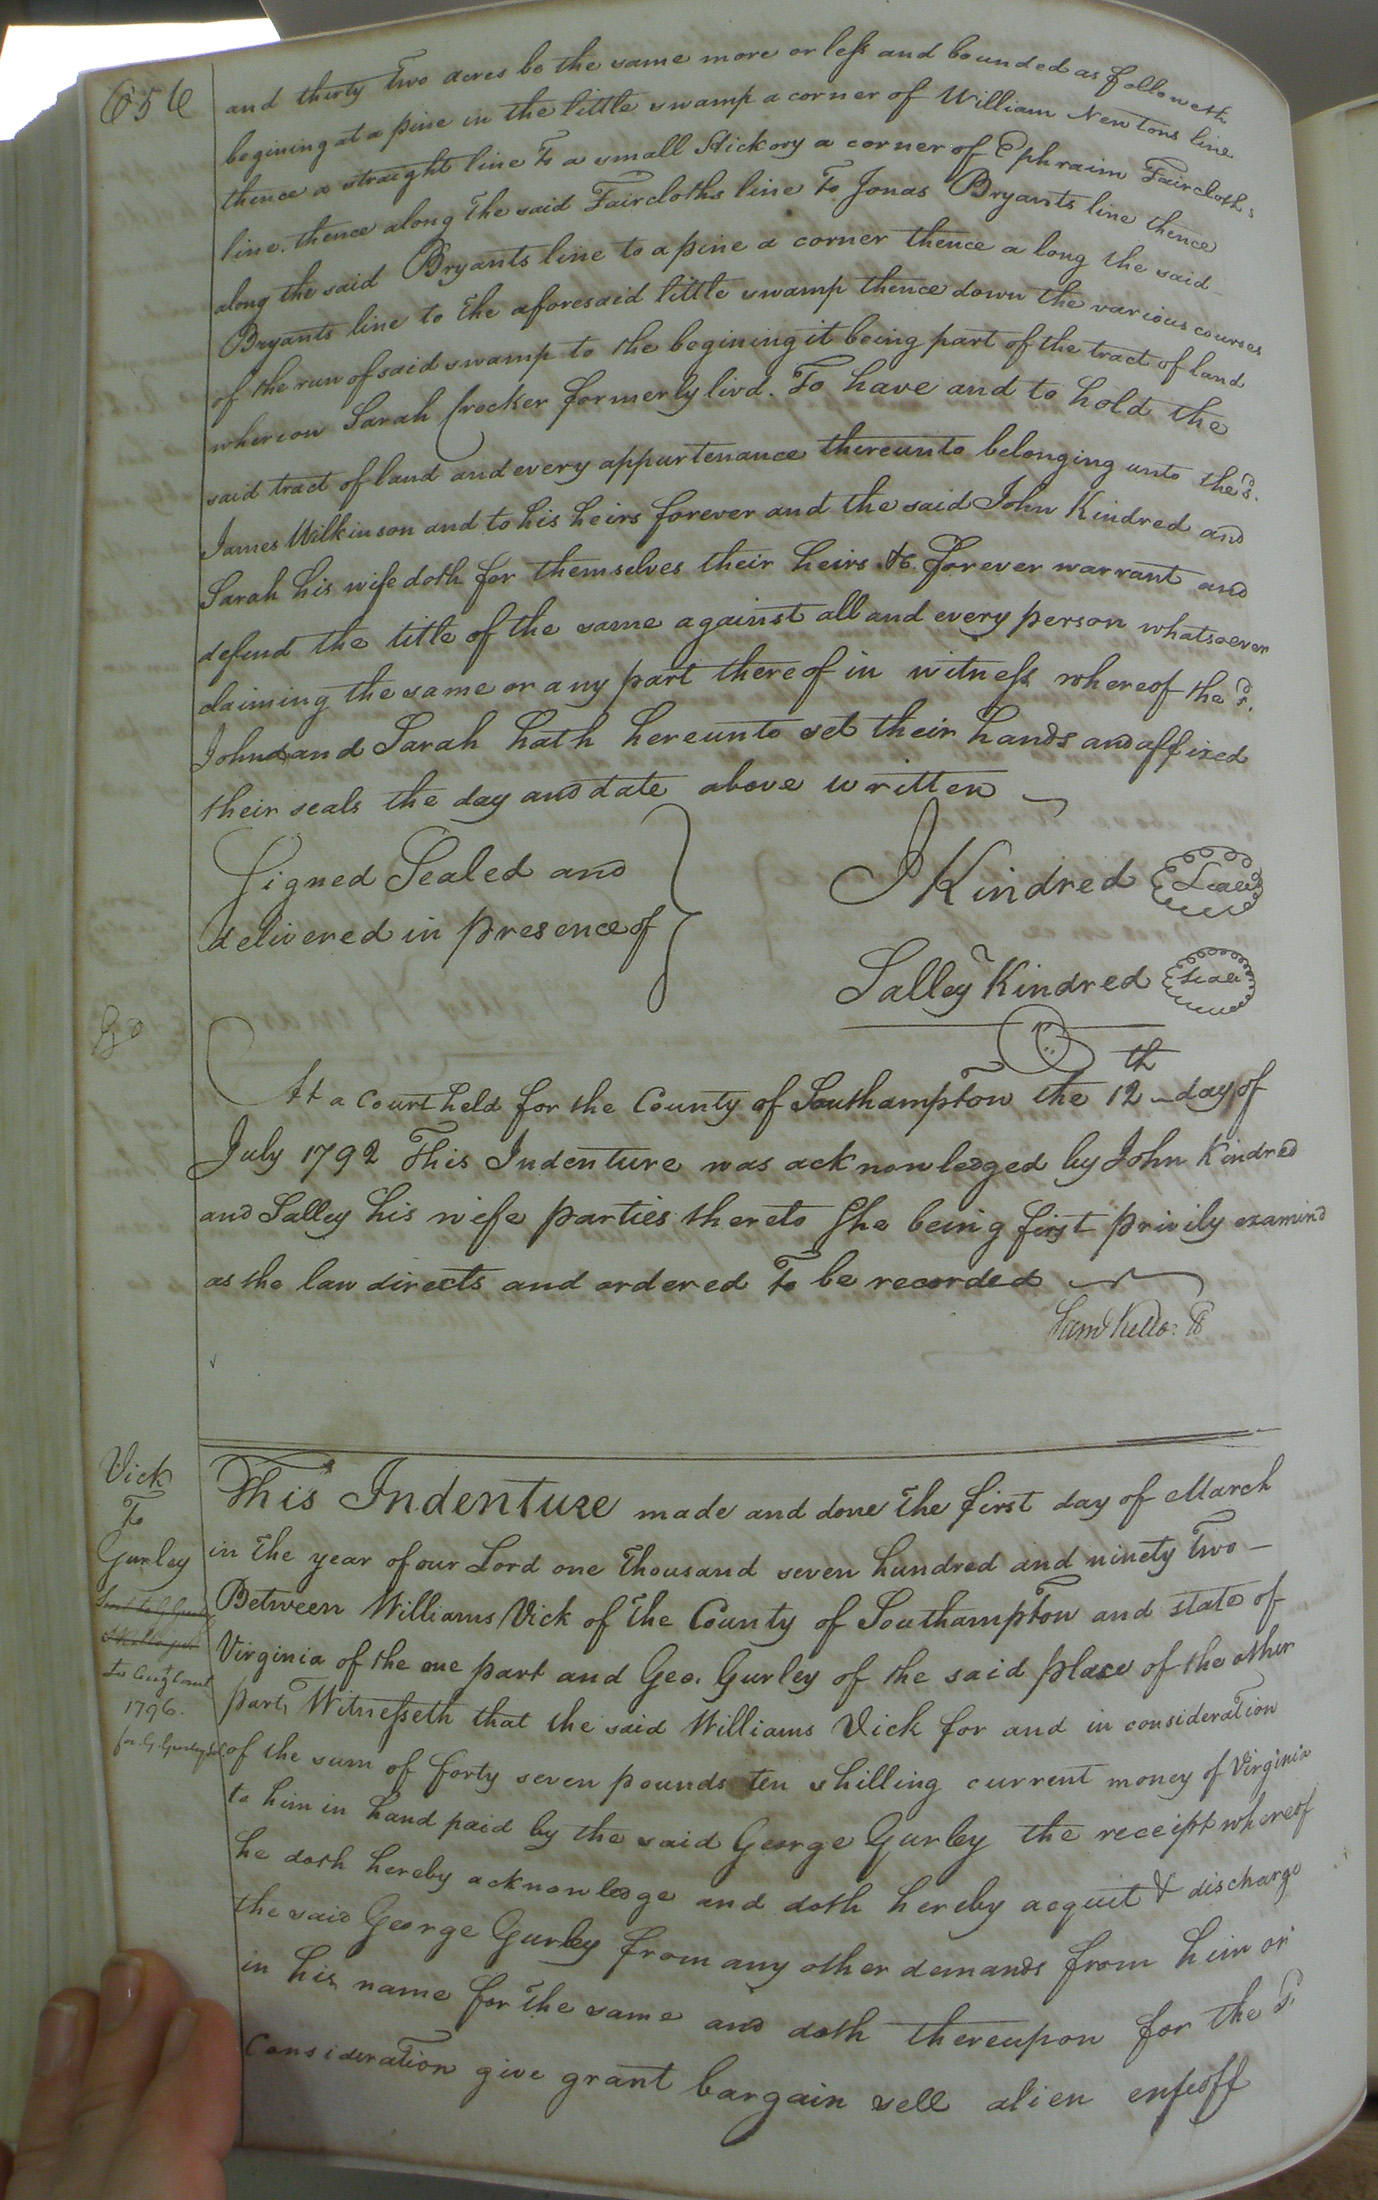 656
and thirty two acres be the same more or less and bounded as followeth
begining at a pine in the little swamp a corner of William Newtons line
thence a straight line to a small Hickory a corner of Ephraim Faircloths
line. thence along the said Faircloths line to Jonas Bryants line thence
along the said Bryants line to a pine a corner thence a long the said
Bryants line to the aforesaid little swamp thence down the various courses
of the run of said swamp to the begining it being part of the tract of land
whereon Sarah Crocker formerly livd. To have and to hold the
said tract of land and every appurtenance thereunto belonging unto the sd.
James Wilkinson and to his heirs forever and the said John Kindred and
Sarah his wife doth for themselves their heirs &c. forever warrant and
defend the title of the same against all and every person whatsoever
claiming the same or any part thereof in witness whereof the sd.
John and Sarah hath hereunto set their hands and affixed
their seals the day and date above written
Signed Sealed and
delivered in presence of
J Kindred Seal
Salley Kindred Seal
At a Court held for the County of Southampton the 12th day of
July 1792 This Indenture was acknowledged by John Kindred
and Salley his wife parties thereto She being first privily examind
as the law directs and ordered to be recorded
Saml Kello: 
Vick
To
Gurley
1796.
This Indenture made and done the first day of March
in the year of our Lord one thousand seven hundred and ninety two
Between Williams Vick of the County of Southampton and state of
Virginia of the one part and Geo. Gurley of the said place of the other
part, Witnesseth that the said Williams Vick for and in consideration
of the sum of forty seven pounds ten shilling current money of Virginia
to him in hand paid by the said George Gurley the receipt whereof
he doth hereby acknowledge and doth hereby acquit & discharge
the said George Gurley from any other demands from him or
in his name for the same and doth thereupon for the sd.
Consideration give grant bargain sell alien enfeoff